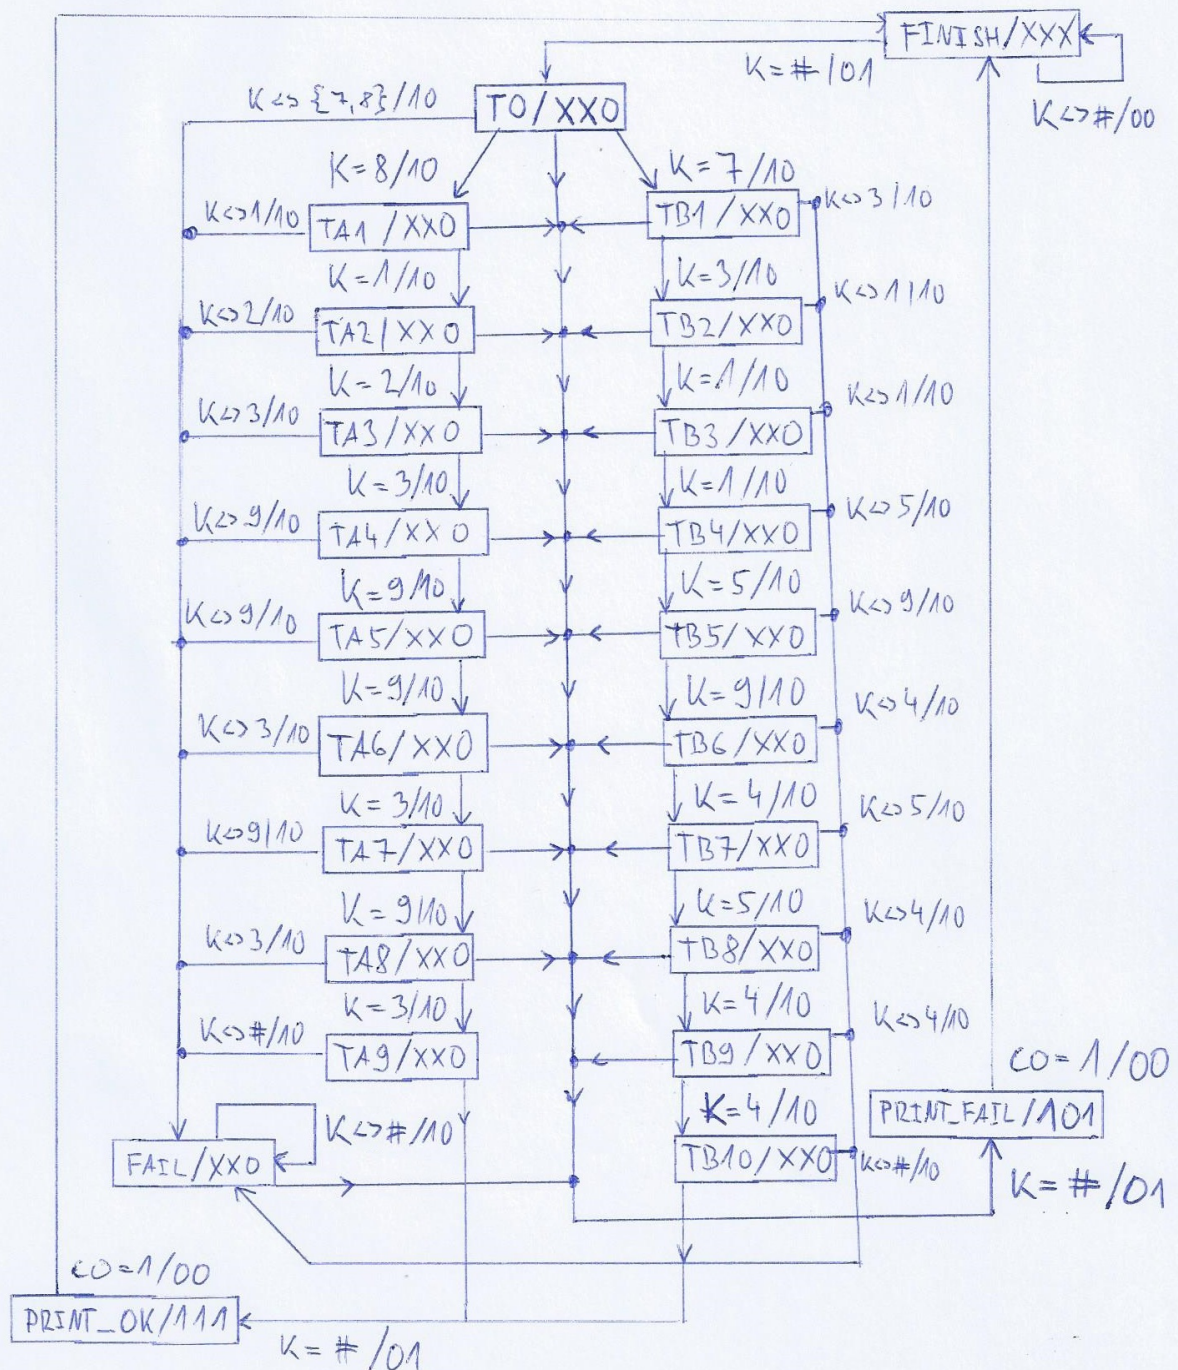 FINISH/XXX
K=#/01
K<>#/00
K<>{7,8}/10
T0/XX0
K=8/10
K=7/10
K<>1/10
TA1/XX0
TB1/XX0
K<>3/10
K=1/10
K=3/10
K<>2/10
TA2/XX0
TB2/XX0
K<>1/10
K=2/10
K=1/10
K<>3/10
TA3/XX0
TB3/XX0
K<>1/10
K=3/10
K=1/10
K<>9/10
TA4/XX0
TB4/XX0
K<>5/10
K=9/10
K=5/10
K<>9/10
TA5/XX0
TB5/XX0
K<>9/10
K=9/10
K=9/10
K<>3/10
TA6/XX0
TB6/XX0
K<>4/10
K=3/10
K=4/10
K<>9/10
TA7/XX0
TB7/XX0
K<>5/10
K=9/10
K=5/10
K<>3/10
TA8/XX0
TB8/XX0
K<>4/10
K=3/10
K=4/10
K<>#/10
TA9/XX0
TB9/XX0
K<>4/10
CO=1/00
K=4/10
PRINT_FAIL/101
K<>#/10
FAIL/XX0
TB10/XX0
K<>#/10
K=#/01
CO=1/00
PRINT_OK/111
K=#/01